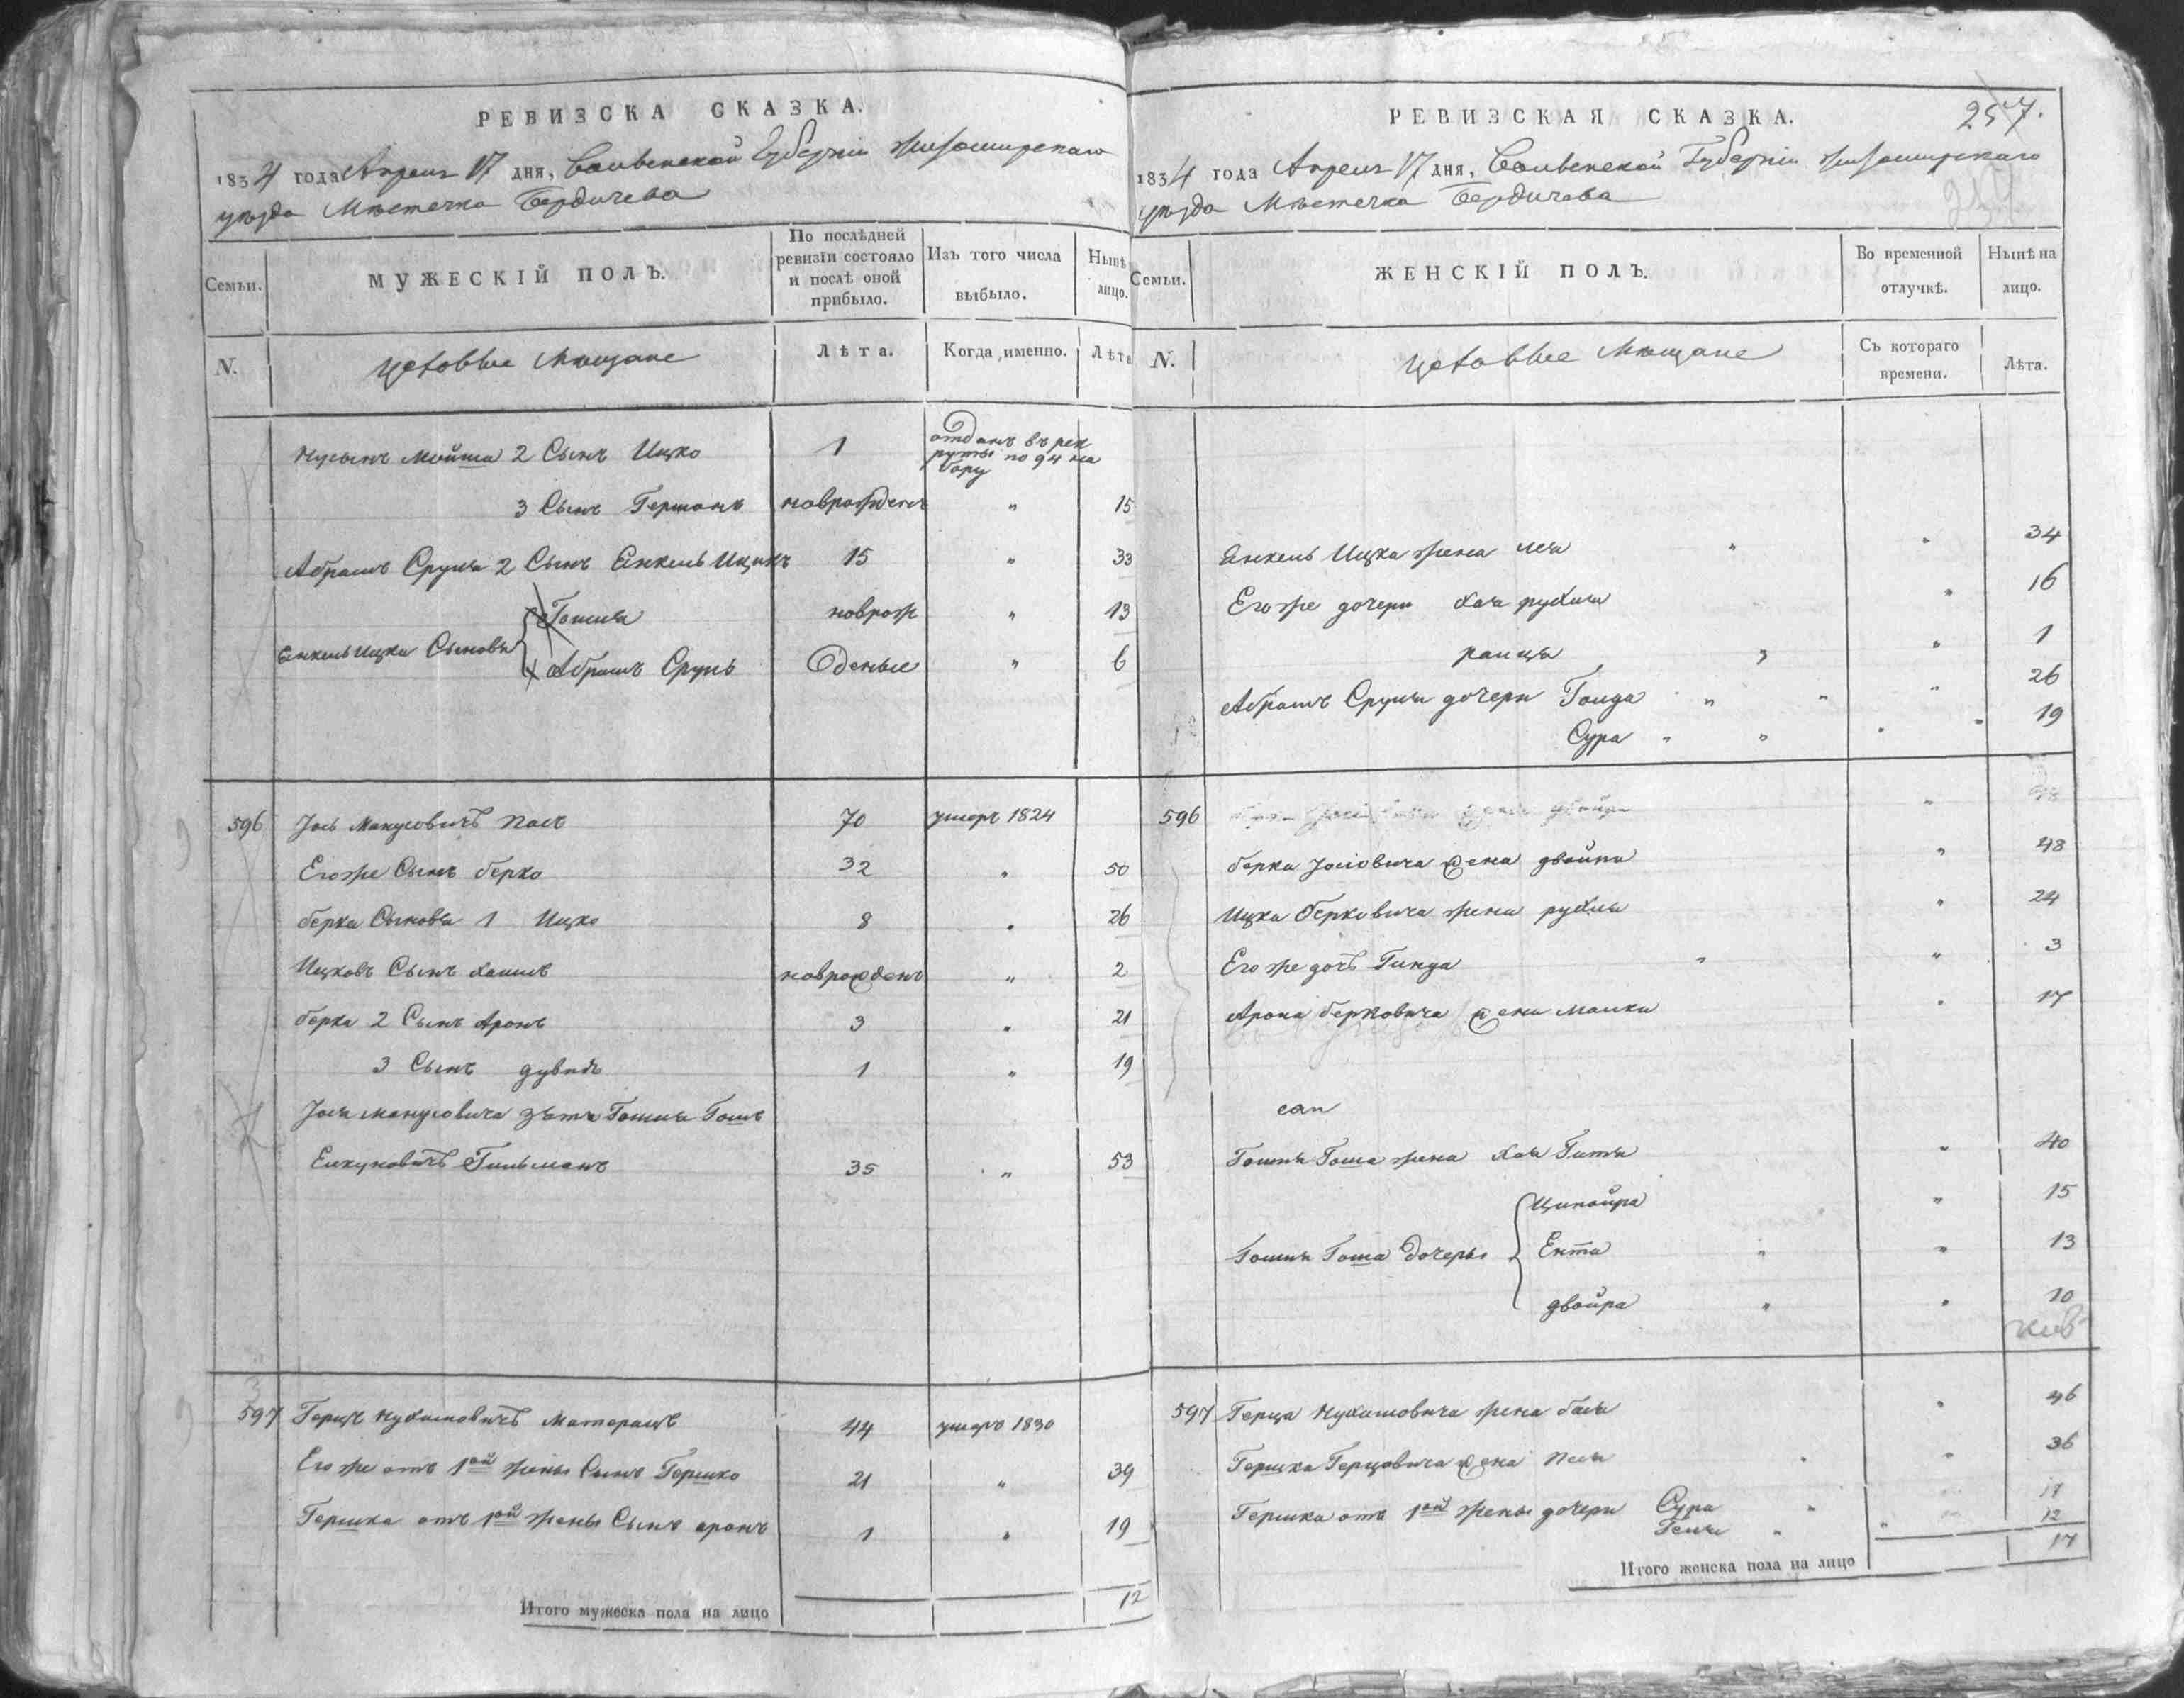 РЕВИЗСКА СКАЗКА.
1834 года Апреля 17 дня, Волынской Губерніи Житомирскаго
уезда Мѣстечка Бердичева
Семьи.
МУЖЕСКІЙ ПОЛЪ.
По послѣдней ревизіи состояло и послѣ оной прибыло.
Изъ того числа выбыло.
Нынѣ лицо.
N.
Цеховые Мещане
Лѣта.
Когда именно.
Лѣта
Нусынъ Мойша 2 Сынъ Ицко 1 отданъ въ рек
руты по 94 на
бору
3 Сынъ Гершонъ новрожденъ " 15
Абрамъ Сруля 2 Сынъ Енкель Ицикъ 15 " 33
новрож " 13
Енкель Ицки Сыновья
Абрамъ Сруль " 6
596 Іось Манусовичъ 70 умеръ 1824
Егоже Сынъ берко 32 " 50
берка Сыновья 1 Ицко 8 " 26
Ицковъ Сынъ Хаимъ новрожденъ " 2
берка 2 Сынъ Аронъ 3 " 21
3 Сынъ дувидъ 1 " 19
Іося манусовича зять
Гильманъ 35 " 53
597 Герцъ Нухимовичъ 44 умеръ 1830
Его же отъ 1ой жены Сынъ Гершко 21 " 39
Гершка отъ 1ой жены Сынъ аронъ 1 " 19
Итого мужеска пола на лицо 12
РЕВИЗСКАЯ СКАЗКА.
257.
1834 года Апреля 17 дня, Волынской Губерніи Житомирскаго
уезда Мѣстечка Бердичева
Семьи.
ЖЕНСКІЙ ПОЛЪ.
Во временной отлучкѣ.
Нынѣ на лицо.
N.
Цеховые Мещане
Съ котораго времени.
Лѣта.
Енкель Ицка жена лея " " 34
Его же дочери Хая рухля " 16
" " 1
Абрамъ Сруля дочери Голда " " " 26
Сура " " " " 19
596
берка Іосіовича жена двойра " 48
Ицка берковича жена рухля " 24
Его же дочь Гинда " " 3
Арона берковича жена малка " 17
жена Хая Гитля " 40
Ципойра " 15
дочеры Ента " " 13
двойра " " 10
597 Герца Нухимовича жена бася " 46
Гершка Герцовича жена песя " " 36
Гершка отъ 1ой жены дочери Сура "
" " 12
Итого женска пола на лицо 17